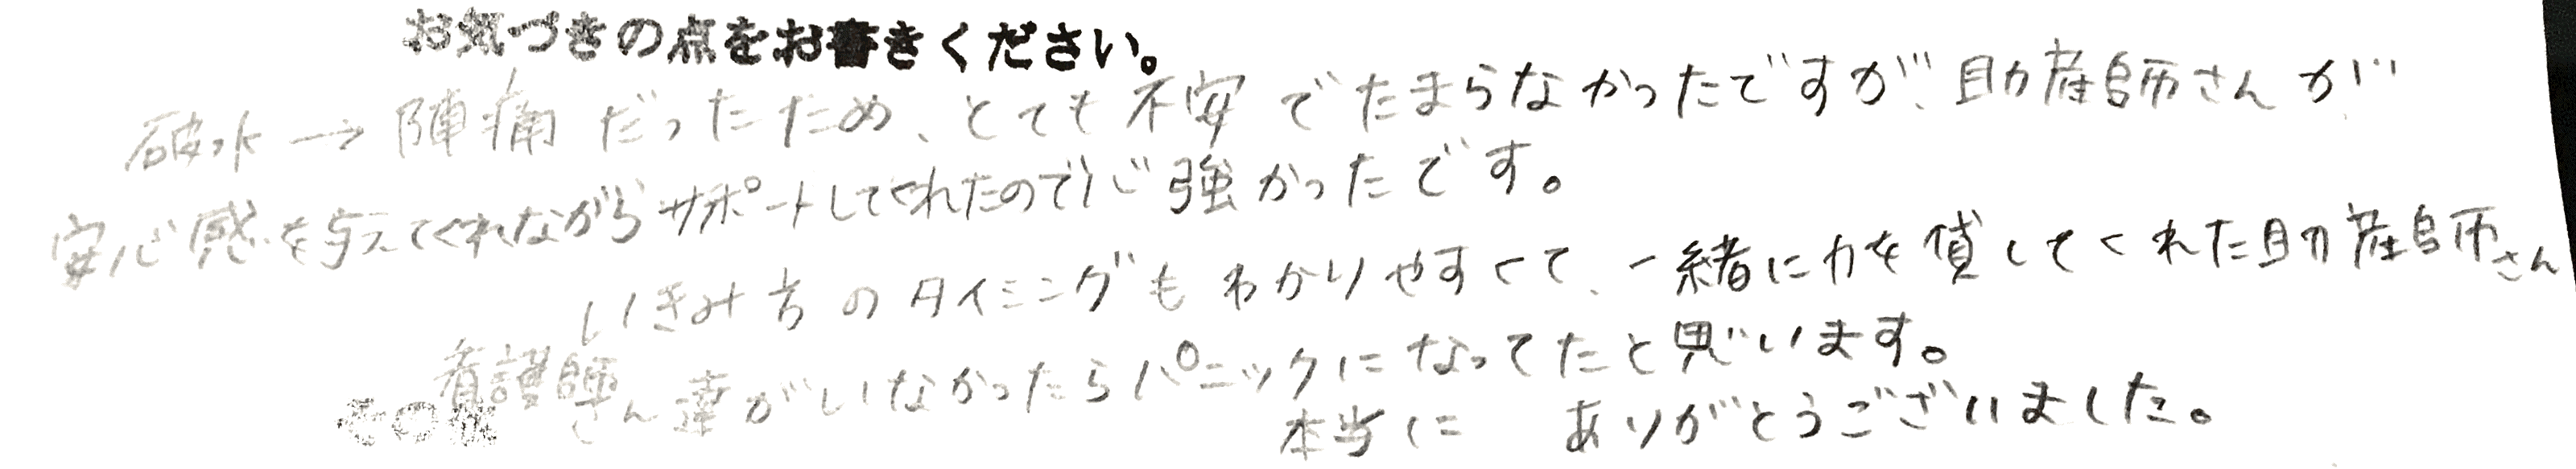 お気づきの点をお書きください。
破水→陣痛だったため、とても不安でたまらなかったですが、助産師さんが
安心感を与えてくれながらサポートしてくれたので心強かったです。
いきみ方のタイミングもわかりやすくて、一緒に力を貸してくれた助産師さん
看護師さん達がいなかったらパニックになってたと思います。
その他
本当に ありがとうございました。